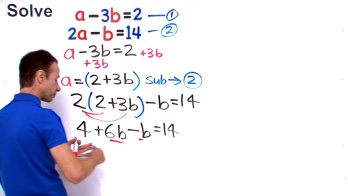 Solve
a-3b=2 ①
2a-b=14 ②
a-3b=2 +3b
+3b
a=(2+3b) sub→②
2(2+3b)-b=14
4+6b-b=14